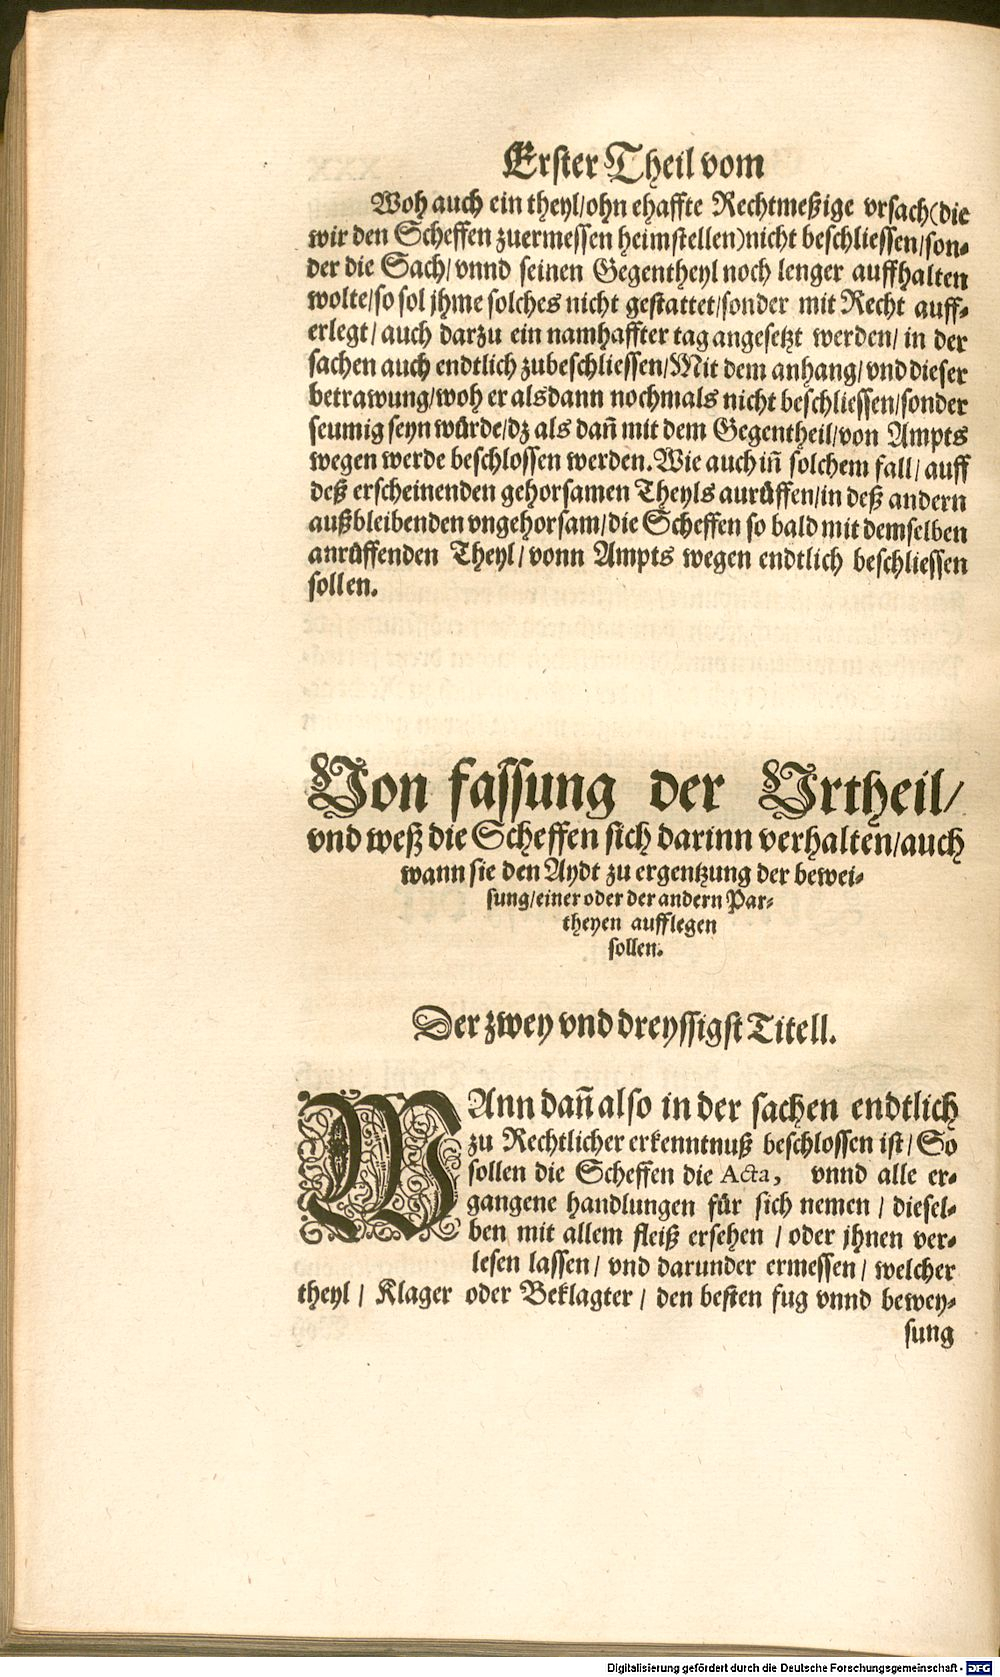 Erster Theil vom
Woh auch ein theyl/ohn ehaffte Rechtmeßige vrsach(die
wir den Scheffen zuermessen heimstellen)nicht beschliessen/son-
der die Sach/vnnd seinen Gegentheyl noch lenger auffhalten
wolte/so sol jhme solches nicht gestattet/sonder mit Recht auff-
erlegt/auch darzu ein namhaffter tag angesetzt werden/in der
sachen auch endtlich zubeschliessen/Mit dem anhang/vnd dieser
betrawung/woh er alsdann nochmals nicht beschliessen/sonder
seumig seyn würde/dz als dañ mit dem Gegentheil/von Ampts
wegen werde beschlossen werden.Wie auch iñ solchem fall/auff
deß erscheinenden gehorsamen Theyls aurüffen/in deß andern
außbleibenden vngehorsam/die Scheffen so bald mit demselben
anrüffenden Theyl/vonn Ampts wegen endtlich beschliessen
sollen.
Von fassung der Vrtheil/
vnd weß die Scheffen sich darinn verhalten/auch
wann sie den Aydt zu ergentzung der bewei-
sung/einer oder der andern Par-
theyen aufflegen
sollen.
Der zwey vnd dreyssigst Titell.
WAnn dañ also in der sachen endtlich
zu Rechtlicher erkenntnuß beschlossen ist/So
sollen die Scheffen die Acta, vnnd alle er-
gangene handlungen für sich nemen/diesel-
ben mit allem fleiß ersehen/oder jhnen ver-
lesen lassen/vnd darunder ermessen/welcher
theyl/Klager oder Beklagter/den besten fug vnnd bewey-
sung
Digitalisierung gefördert durch die Deutsche Forschungsgemeinschaft - DFG